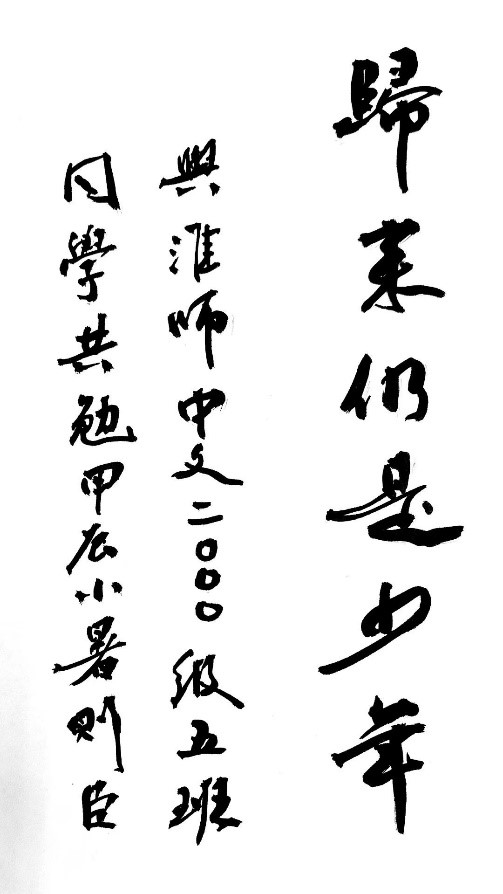 歸來仍是少年
與淮师中文二〇〇〇级五班
同學共勉甲辰小暑则臣